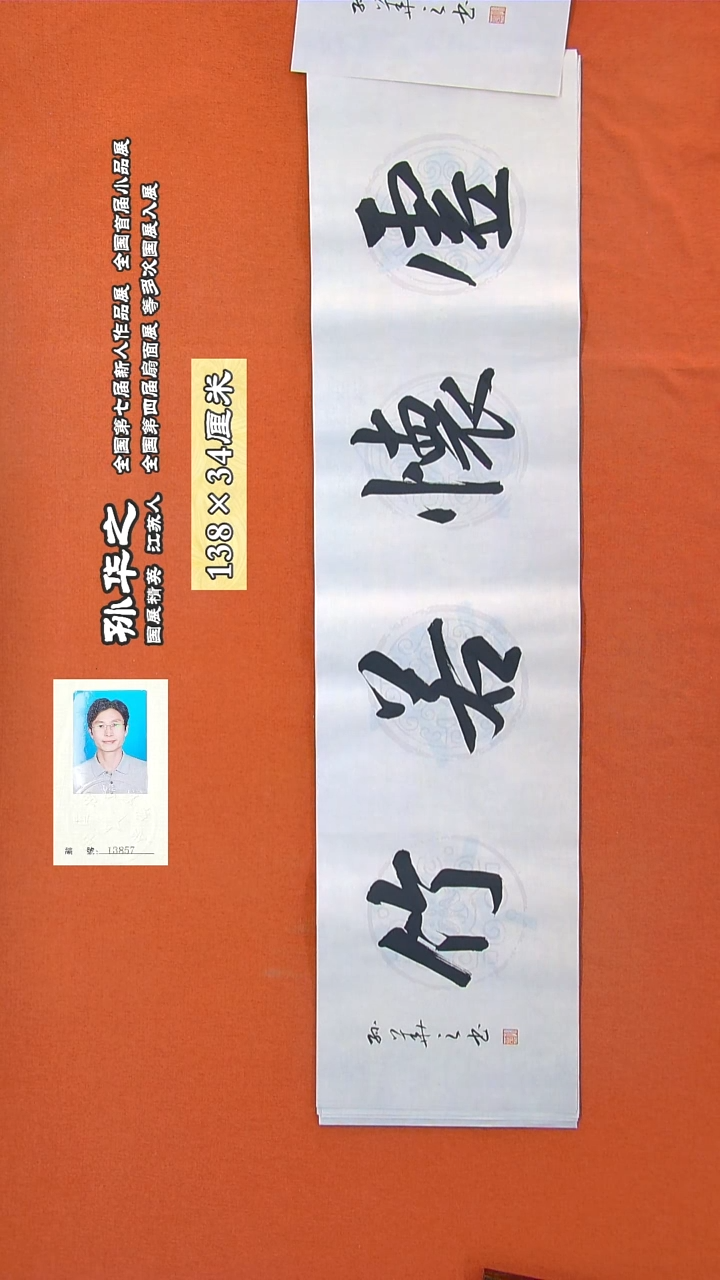 孙华之
国展精英 江苏人
全国第七届新人作品展 全国首届小品展
全国第四届扇面展 等多次国展入展
138×34厘米
編 號: 13857
虚懷若竹
孙華之书
孙華之书